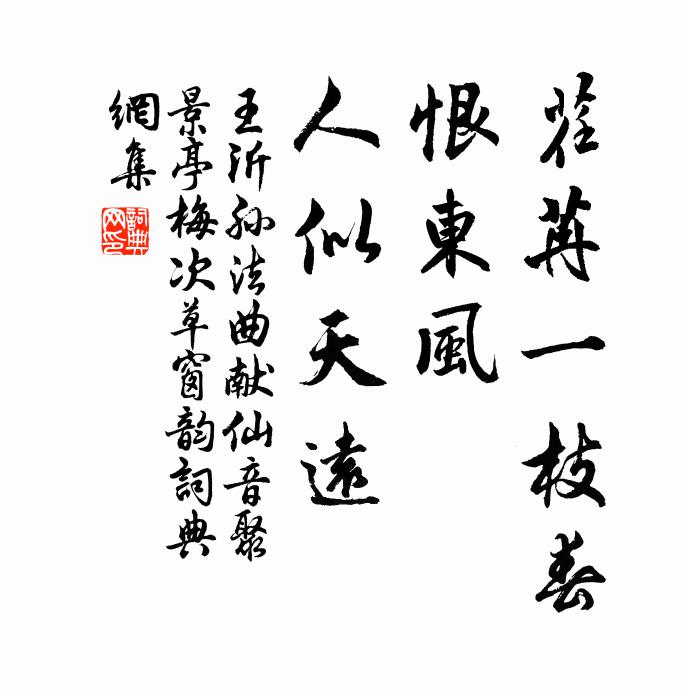 荏苒一枝春
恨東風
人似天遠
王沂孙法曲献仙音聚
景亭梅次草窗韵詞典
網集
詞典网印